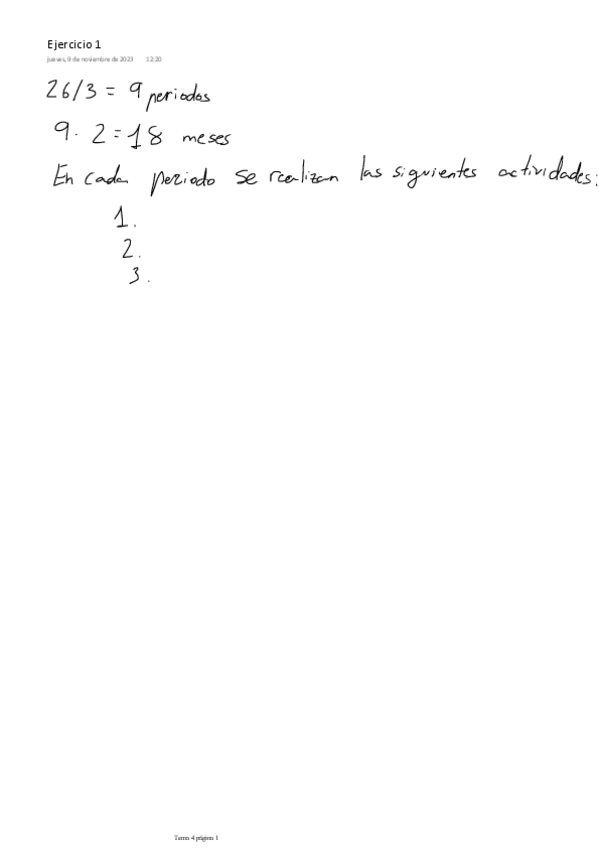 Ejercicio 1
jueves, 9 de noviembre de 2023 12:20
26/3 = 9 periodos
9. 2=18 meses
En cada periodo se realizan las siguientes actividades:
1.
2.
3.
Tema 4 página 1